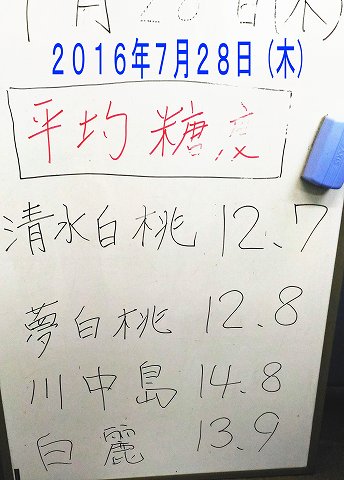 月28日(木)
2016年7月28日(木)
平均糖度
清水白桃 12.7
夢白桃 12.8
川中島 14.8
白麗 13.9